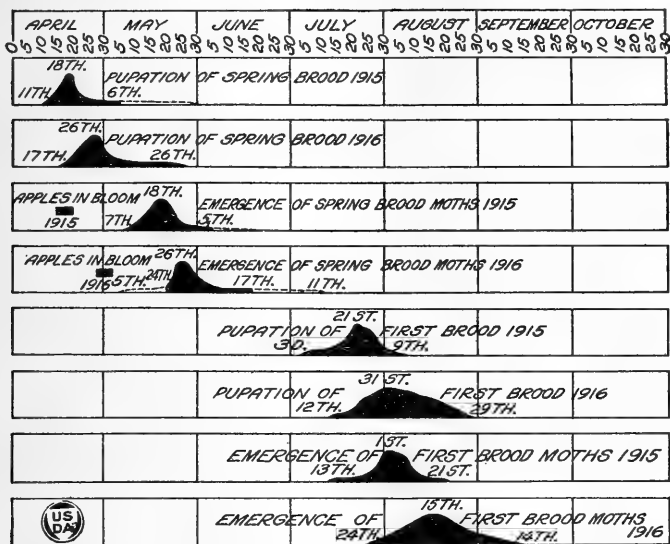 APRIL MAY JUNE JULY AUGUST SEPTEMBER OCTOBER
0 5 10 15 20 25 30 5 10 15 20 25 30 5 10 15 20 25 30 5 10 15 20 25 30 5 10 15 20 25 30 5 10 15 20 25 30 5 10 15 20 25 30
18TH.
PUPATION OF SPRING BROOD 1915
11TH. 6TH.
26TH.
PUPATION OF SPRING BROOD 1916
17TH. 26TH.
APPLES IN BLOOM 18TH. EMERGENCE OF SPRING BROOD MOTHS 1915
1915 7TH. 5TH.
APPLES IN BLOOM 26TH. EMERGENCE OF SPRING BROOD MOTHS 1916
1916 5TH. 24TH. 17TH. 11TH.
21ST.
PUPATION OF FIRST BROOD 1915
3D. 9TH.
31ST.
PUPATION OF FIRST BROOD 1916
12TH. 29TH.
1ST.
EMERGENCE OF FIRST BROOD MOTHS 1915
13TH. 21ST.
15TH.
EMERGENCE OF FIRST BROOD MOTHS
24TH. 14TH. 1916
US
DA